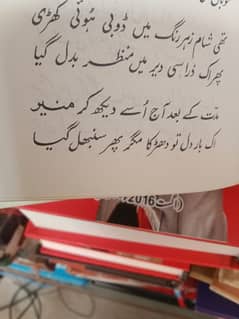 تھی شام زہر رنگ میں ڈوبی ہوئی کھڑی
پھر اک ذرا سی دیر میں منظر بدل گیا
مدّت کے بعد آج اُسے دیکھ کر منیرؔ
اک بار دل تو دھڑکا مگر پھر سنبھل گیا
2016